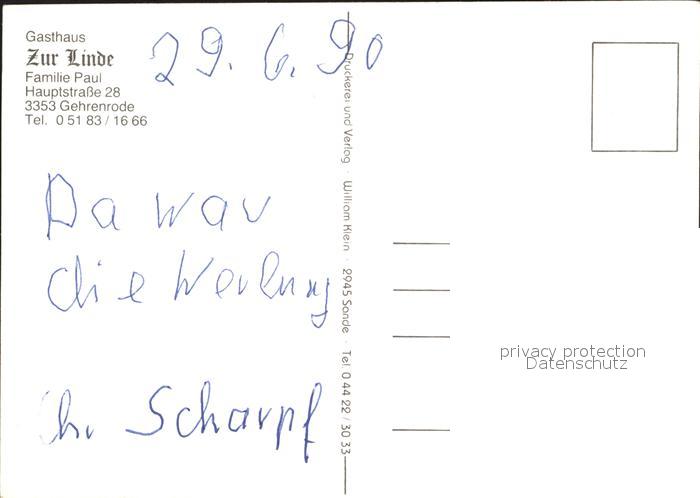 Gasthaus
Zur Linde
Familie Paul
Hauptstraße 28
3353 Gehrenrode
Tel. 0 51 83 / 16 66
29. 6. 90
Da war
die Werbung
Scharpf
Druckerei und Verlag · William Klein · 2945 Sande · Tel. 0 44 22 / 30 33
privacy protection
Datenschutz